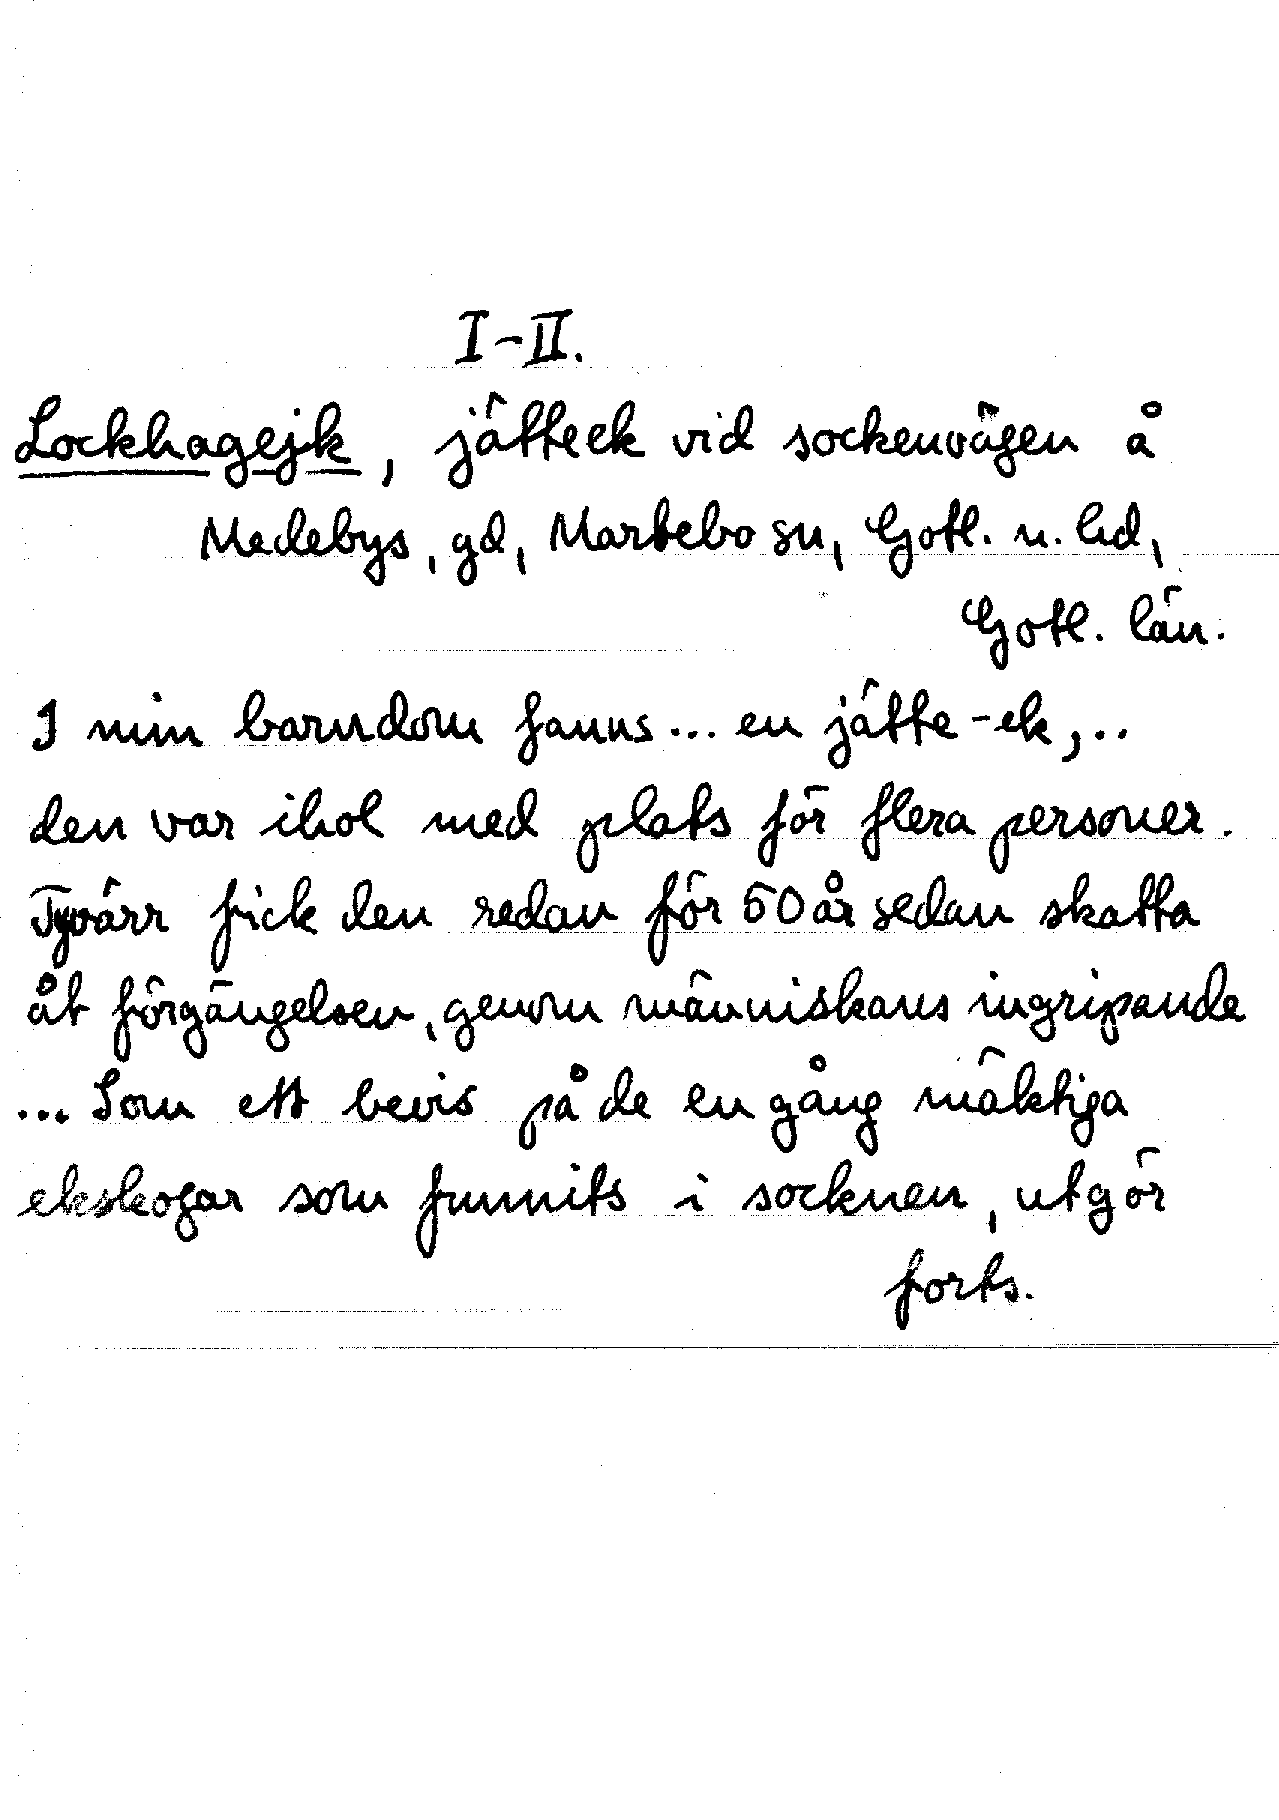 I-II.
Lockhagejk, jätteek vid sockenvägen å
Medebys, gd, Martebo sn, Gotl. n. hd,
Gotl. län.
I min barndom fanns... en jätte-ek,..
den var ihol med plats för flera personer.
Tyvärr fick den redan för 50 år sedan skatta
åt förgängelsen, genom människans ingripande
... Som ett bevis på de en gång mäktiga
ekskogar som funnits i socknen, utgör
forts.